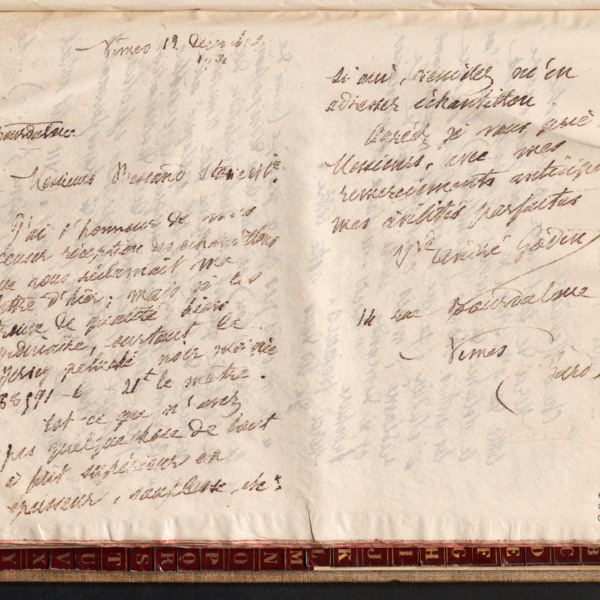 Nimes 12
Messieurs
J'ai l'honneur de vous
accuser réception des échantillons
que vous réclamait ma
lettre d'hier; mais je les
trouve de qualité bien
ordinaire, surtout le
Jersey noir
88591-6 21f le mètre.
Est-ce que n'avez
pas quelque chose de tout
à fait supérieur en
épaisseur, souplesse, etc.
si oui, veuillez m'en
adresser échantillon.
Agréez, je vous prie
Messieurs, avec mes
remerciements anticipés
mes civilités parfaites
Vve André Godin
14 rue Bourdaloue
Nimes
Gard
X V U T S R Q P O N M L K J I H G F E D C B